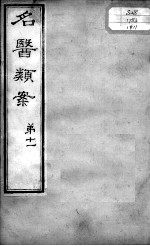 名醫類案
弟十一